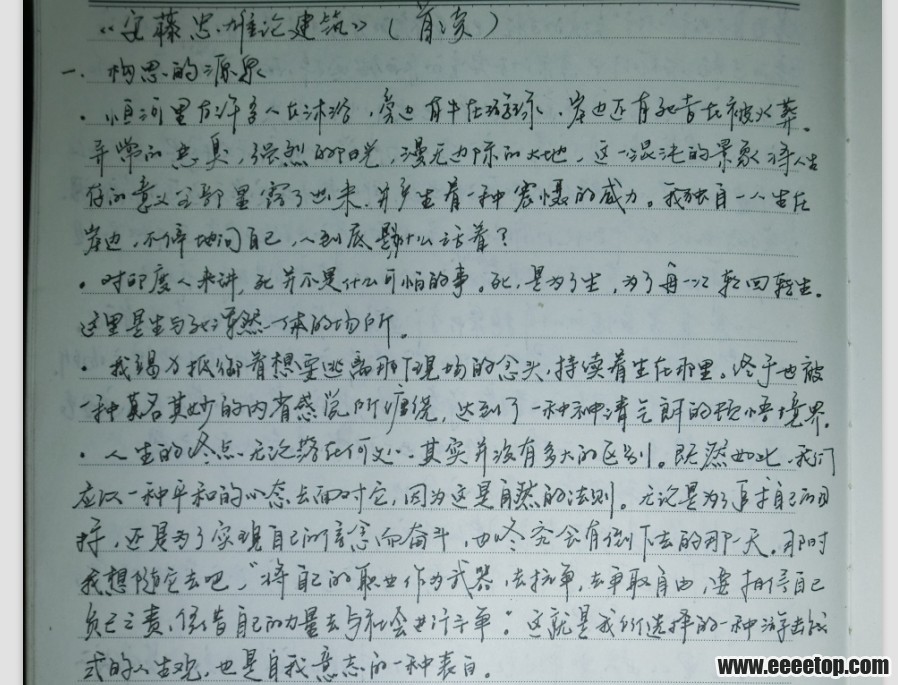 《安藤忠雄论建筑》（首读）
一、构思的源泉
·恒河里有许多人在沐浴，旁边有牛在游泳、岸边还有死者在被火葬。
异常的恶臭，强烈的阳光，漫无边际的大地，这一混沌的景象将人生
存的意义全部显露了出来，并产生着一种震慑的威力。我独自一人坐在
岸边，不停地问自己，人到底是为什么活着？
·对印度人来讲，死并不是什么可怕的事。死，是为了生，为了再一次轮回转生。
这里是生与死浑然一体的场所。
·我竭力抵御着想要逃离那个现场的念头，持续着坐在那里。终于也被
一种莫名其妙的内省感觉所缠绕，达到了一种神清气朗的顿悟境界。
·人生的终点无论落在何处，其实并没有多大的区别。既然如此，我们
应以一种平和的心态去面对它，因为这是自然的法则。无论是为了追求自己的
持，还是为了实现自己的意念而奋斗，也终究会有倒下去的那一天。那时
我想随它去吧，“将自己的职业作为武器，去抗争，去争取自由，要拥有自己
负己之责，凭借自己的力量去与社会进行斗争”。这就是我所选择的一种游击战
式的人生观，也是自我意志的一种表白。
www.eeeetop.com